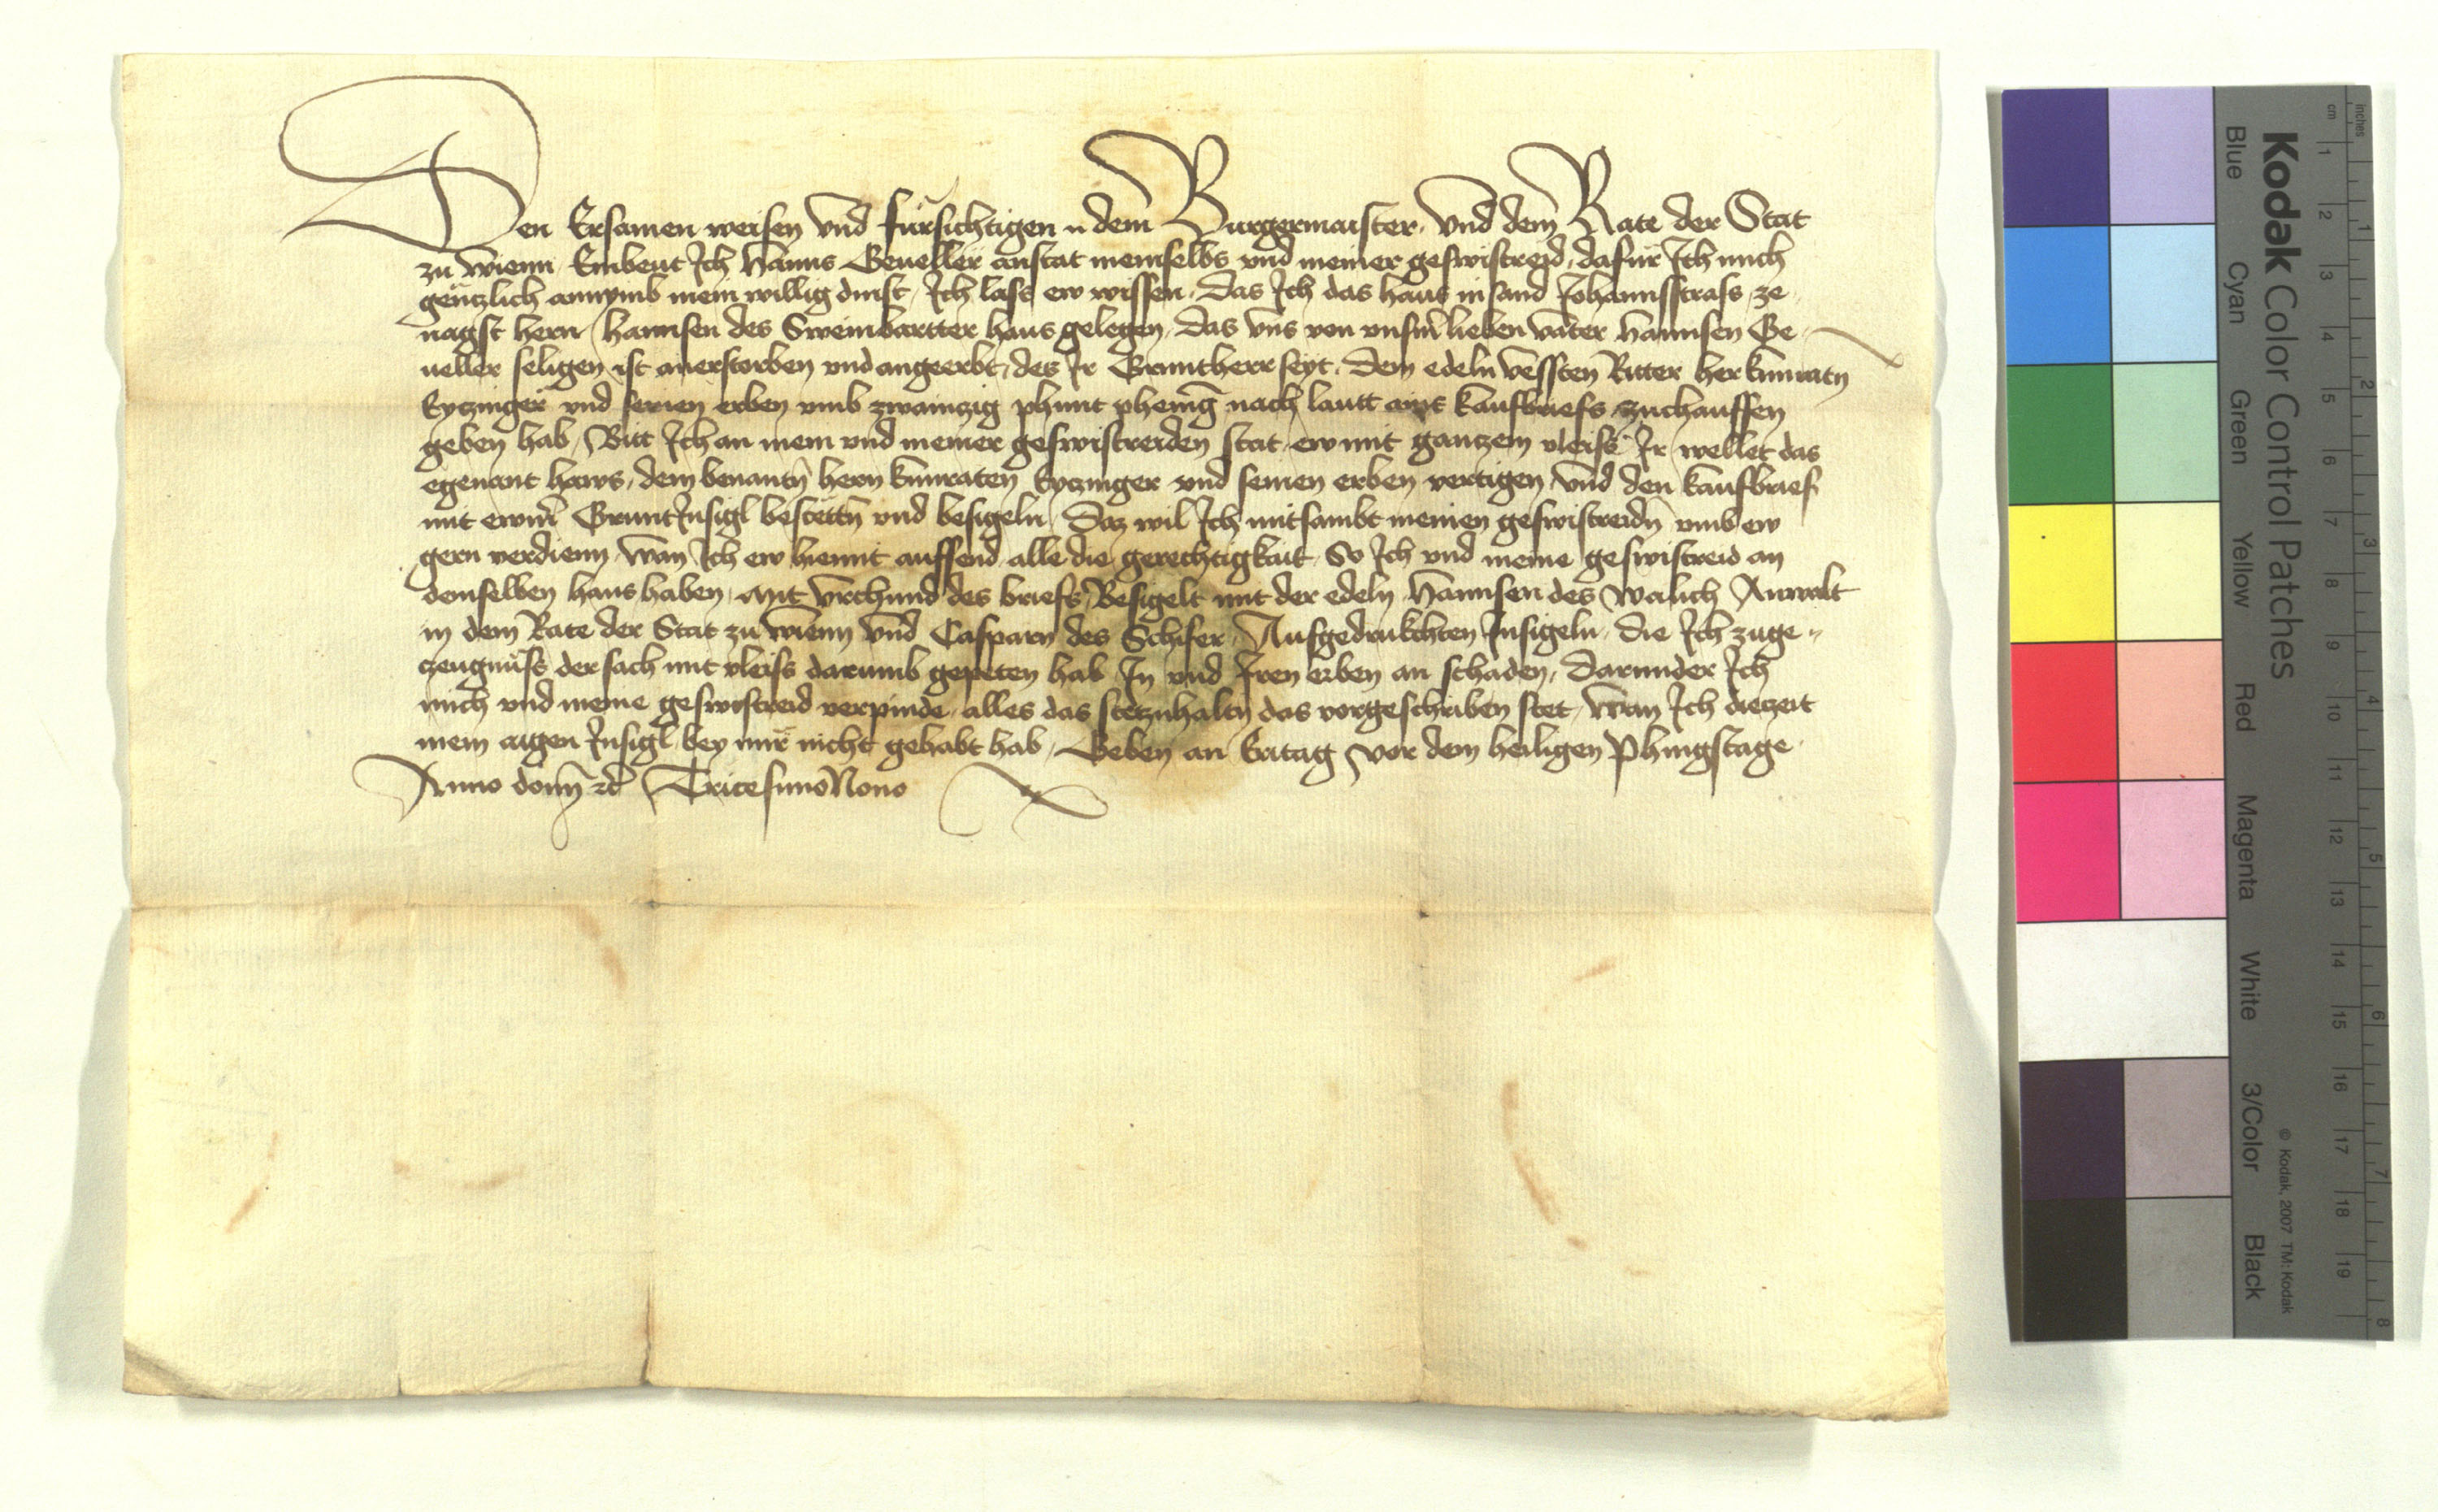 Den Ersamen weisen vnd fürsichtigen n dem Burgermaister vnd dem Rate der Stat
zu wienn Embeut Ich Hanns Geueller anstat meinselbs vnd meiner geswistreid, dafür Ich mich
gentzlich annymb mein willig dinst, Ich lass ew wissen, Das Ich das haus in sand Johannsstrass, ze
nagst hern Hannsen des Sweinbartter haus gelegen, Das vns von vnserm lieben vater Hannsen Ge
ueller seligen ist anerstorben vnd angeerbt, des Ir Grunttherr seyt, Dem edeln vessten Ritter her kunratn
Eytzinger vnd seinen erben vmb zwainzig phunt phenig nach lautt ains kaufbriefs zuchauffen
geben hab, Bitt Ich an mein vnd meiner geswistreiden stat ew mit gantzem vleiss Ir wellet das
egenant haws, dem benantn hern kunraten Eytzinger vnd seinen erben vertigen vnd den kaufbrief
mit ewrm GruntInsigl bestettn vnd besigeln, Daz wil Ich mitsambt meinen geswistreidn vmb ew
gern verdienn, wan Ich ew hiemit auffsend alle die gerechtigkait So Ich vnd meine geswistreid an
demselben haus haben, Mit vrchund des briefs, Besigelt mit der edeln Hannsen des walich Anwalt
in dem Rate der Stat zu wienn vnd Casparn des Schifer, Aufgedrukchten Insigeln, die Ich zuge
czeugnüss der sach mit vleiss darumb gepeten hab In vnd Iren erben an schaden, Darunder Ich
mich vnd meine geswistreid verpinde, alles das stetzuhaltn das vorgeschriben stet, wan Ich diezeit
mein aigen Insigl bey mir nicht gehabt hab, Geben an Eritag vor dem heiligen Phingstage
Anno domini etc Tricesimo Nono
Kodak Color Control Patches
Blue Cyan Green Yellow Red Magenta White 3/Color Black
© Kodak, 2007 TM: Kodak
inches 1 2 3 4 5 6 7 8
cm 1 2 3 4 5 6 7 8 9 10 11 12 13 14 15 16 17 18 19